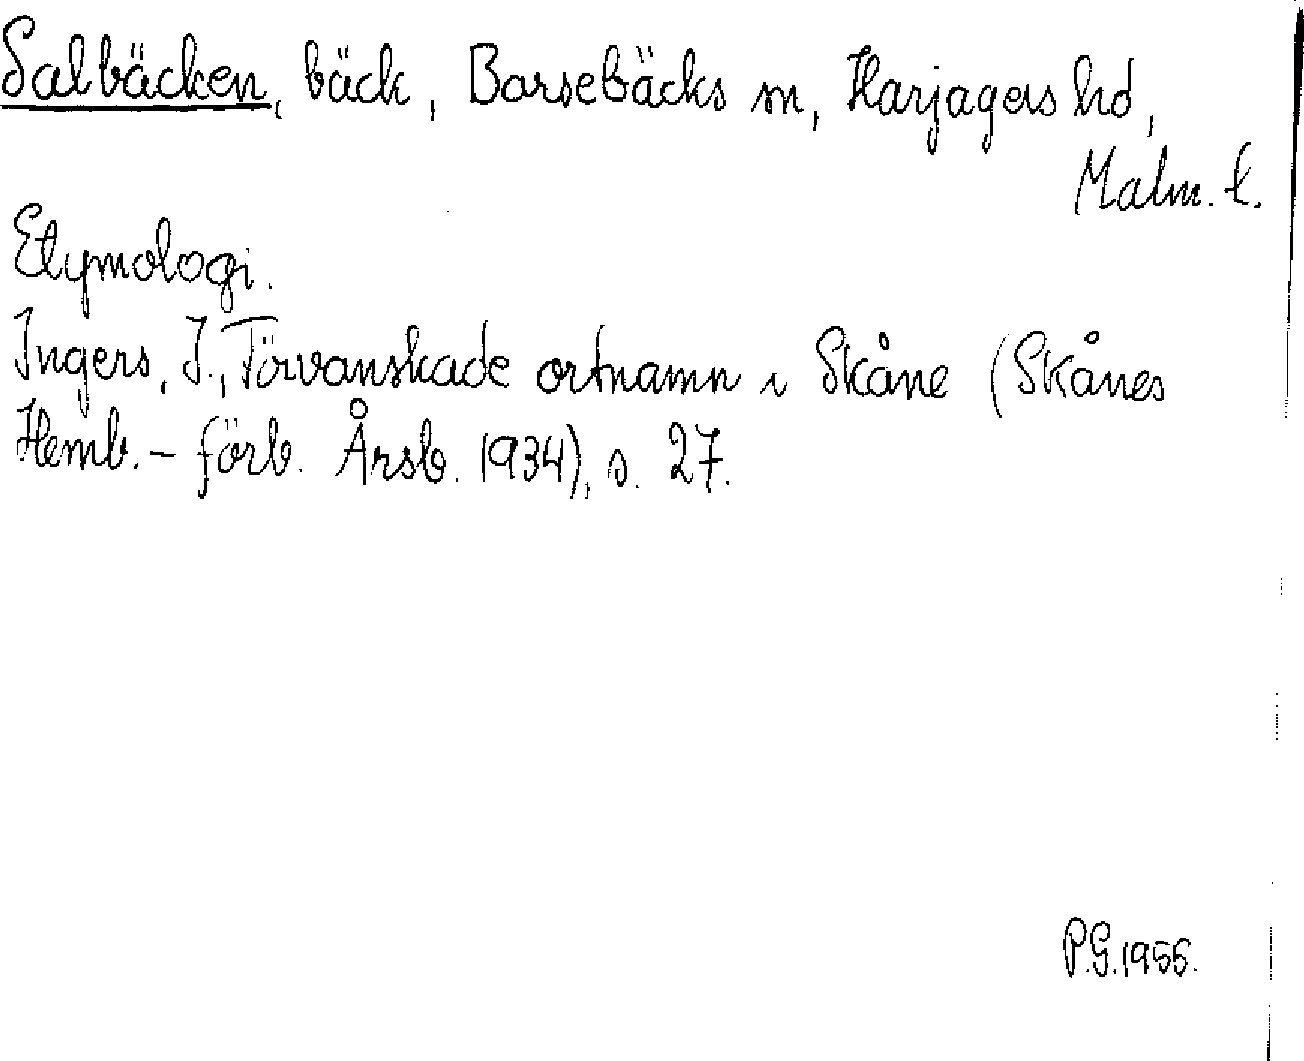 Salbäcken, bäck, Barsebäcks sn, Harjagers hd,
Malm. l.
Etymologi.
Ingers, I., Förvanskade ortnamn i Skåne (Skånes
Hemb.-förb. Årsb. 1934), s. 27.
P.G. 1955.